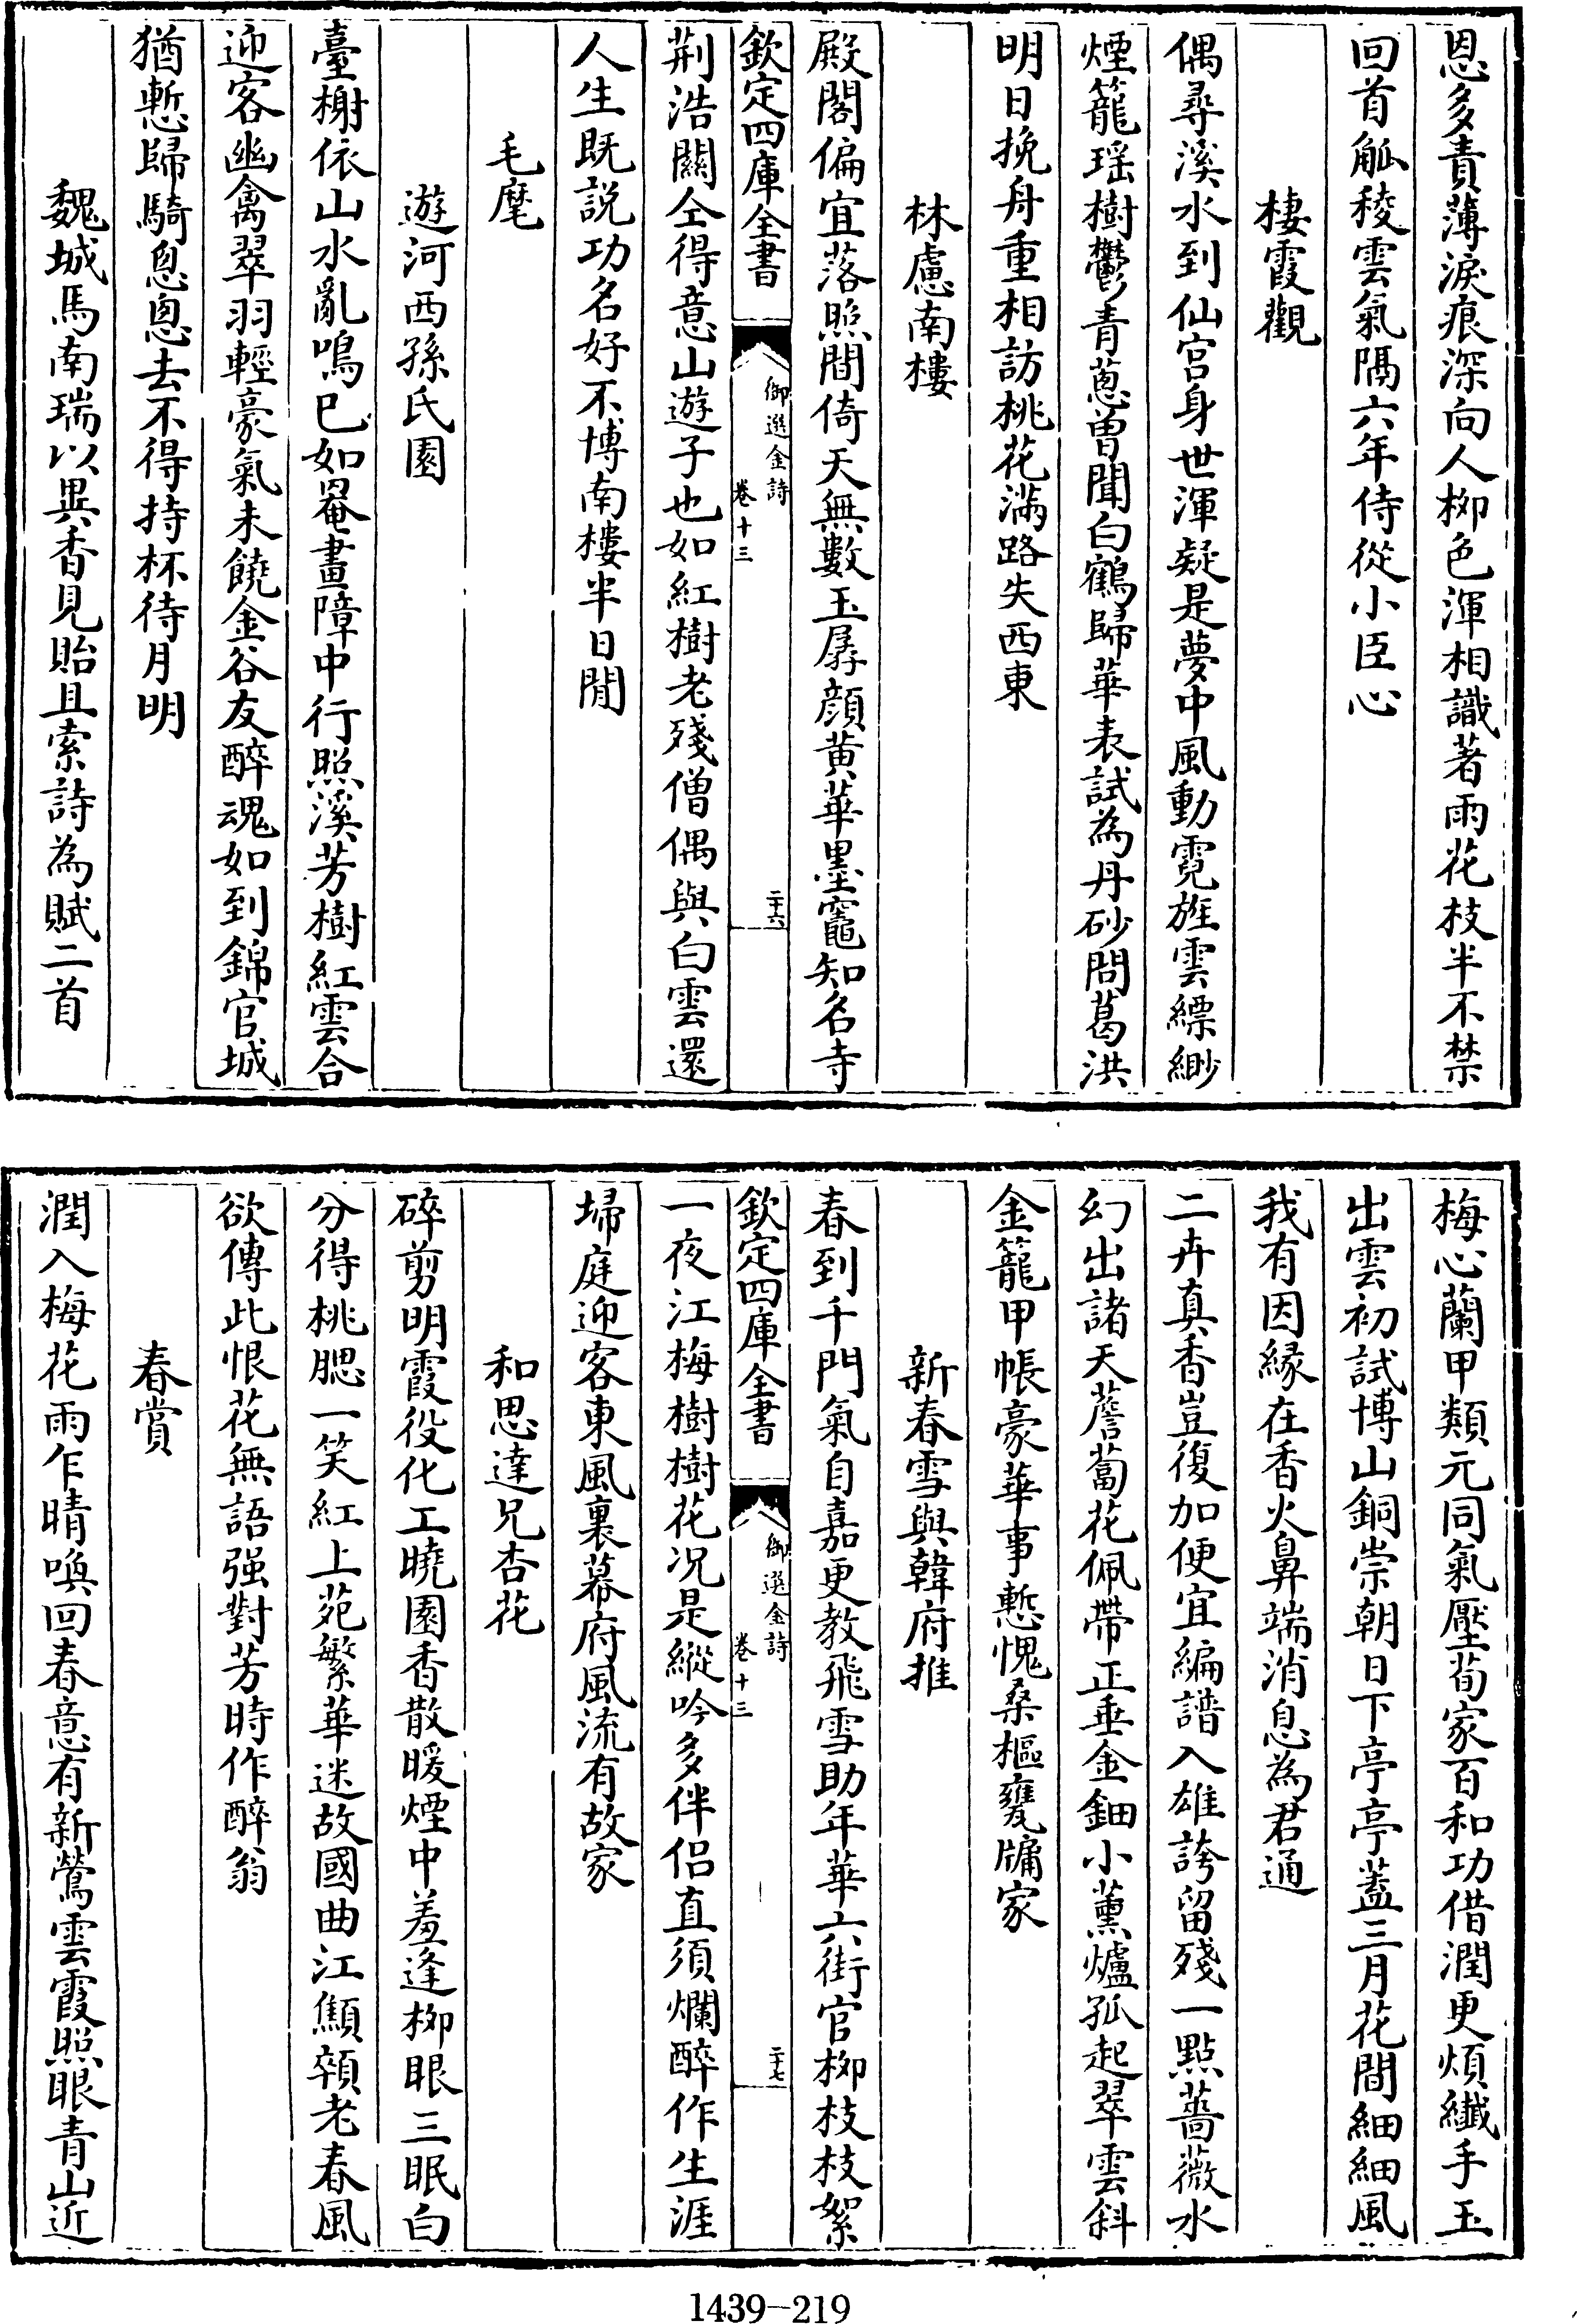 恩多責薄淚痕深向人柳色渾相識著雨花枝半不禁
回首觚稜雲氣隔六年侍從小臣心
棲霞觀
偶尋溪水到仙宫身世渾疑是夢中風動霓旌雲縹緲
煙籠瑶樹鬱青蔥曾聞白鶴歸華表試為丹砂問葛洪
明日挽舟重相訪桃花滿路失西東
林慮南樓
殿閣偏宜落照間倚天無數玉孱顔黄華墨竈知名寺
欽定四庫全書
御選金詩
卷十三
二十六
荆浩關仝得意山遊子也如紅樹老殘僧偶與白雲還
人生既説功名好不博南樓半日閒
毛麾
遊河西孫氏園
臺榭依山水亂鳴已如罨畫障中行照溪芳樹紅雲合
迎客幽禽翠羽輕豪氣未饒金谷友醉魂如到錦官城
猶慙歸騎悤悤去不得持杯待月明
魏城馬南瑞以異香見貽且索詩為賦二首
梅心蘭甲類元同氣壓荀家百和功借潤更煩纖手玉
出雲初試博山銅崇朝日下亭亭蓋三月花間細細風
我有因縁在香火鼻端消息為君通
二卉真香豈復加便宜編譜入雄誇留殘一點薔薇水
幻出諸天薝蔔花佩帶正垂金鈿小薰爐孤起翠雲斜
金籠甲帳豪華事慙愧桑樞甕牖家
新春雪與韓府推
春到千門氣自嘉更教飛雪助年華六街官柳枝枝絮
欽定四庫全書
御選金詩
卷十三
二十七
一夜江梅樹樹花况是縱吟多伴侶直須爛醉作生涯
埽庭迎客東風裏幕府風流有故家
和思達兄杏花
碎剪明霞役化工曉園香散暖煙中羞逢柳眼三眠白
分得桃腮一笑紅上苑繁華迷故國曲江顦顇老春風
欲傳此恨花無語强對芳時作醉翁
春賞
潤入梅花雨乍晴喚回春意有新鶯雲霞照眼青山近
1439-219